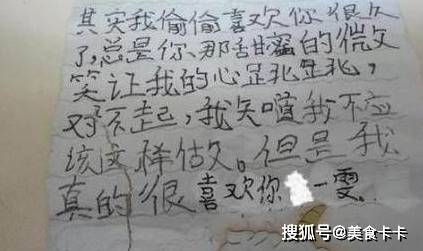 其实我偷偷喜欢你很久
了,总是你、那甜蜜的微
笑让我的心是
对不起,我知道我不应
该这样做。但是我
真的很喜欢你 一雯
搜狐号@美食卡卡